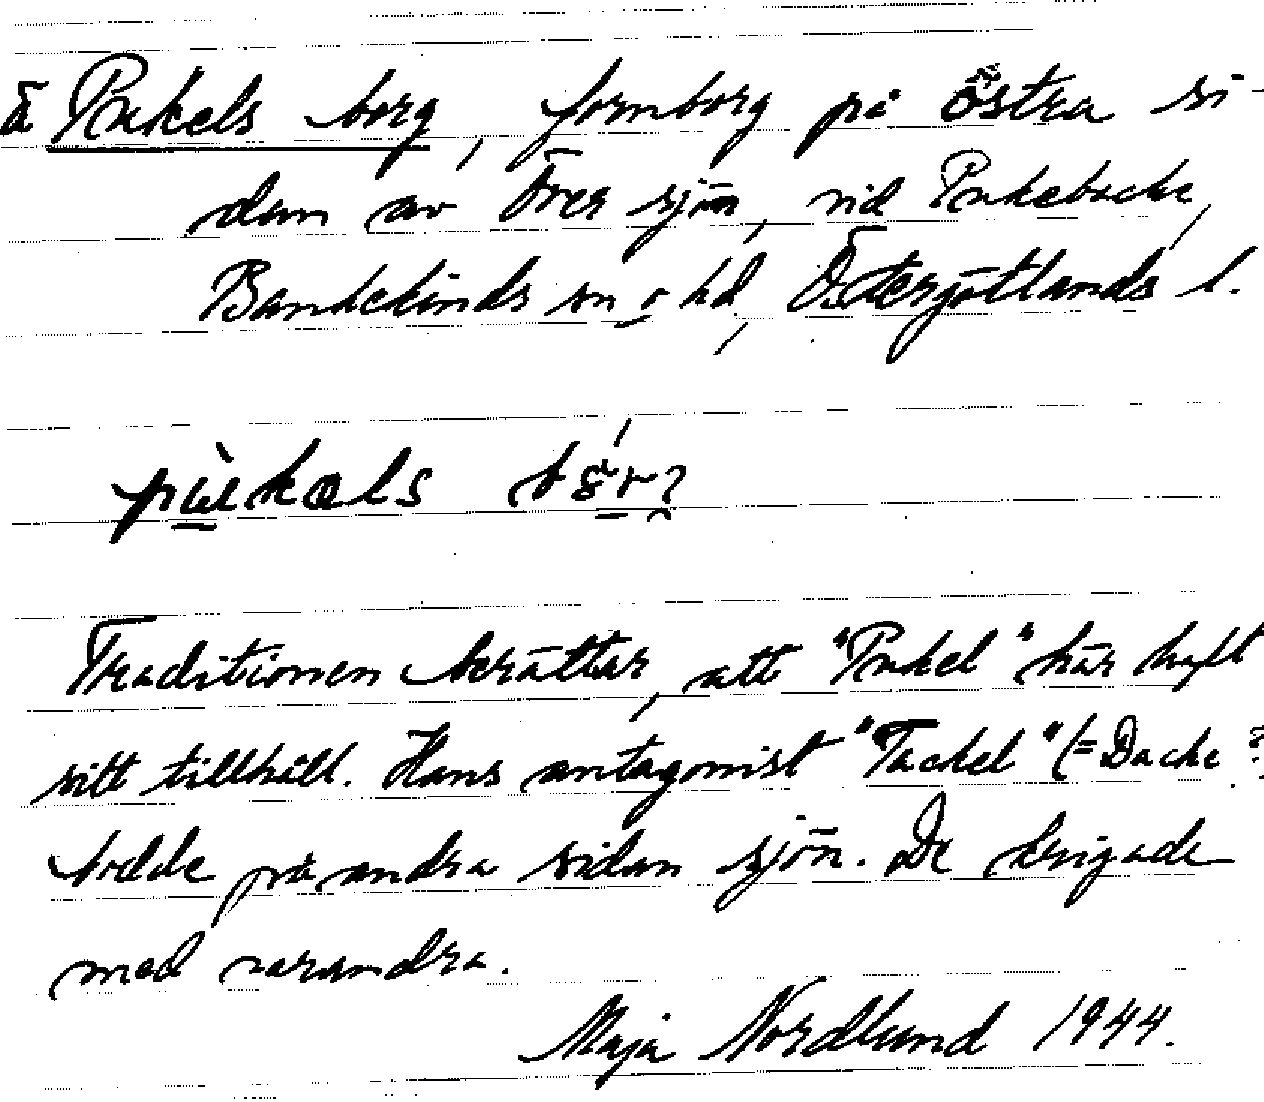 å Pukels borg, fornborg på östra si-
dan av Över sjön, vid Pukebacke,
Bankekinds sn o hd, Östergötlands l.
Traditionen berättar, att "Pukel" här haft
sitt tillhåll. Hans antagonist "Tackel" (= Dacke?
bodde på andra sidan sjön. De krigade
med varandra.
Maja Nordlund 1944.